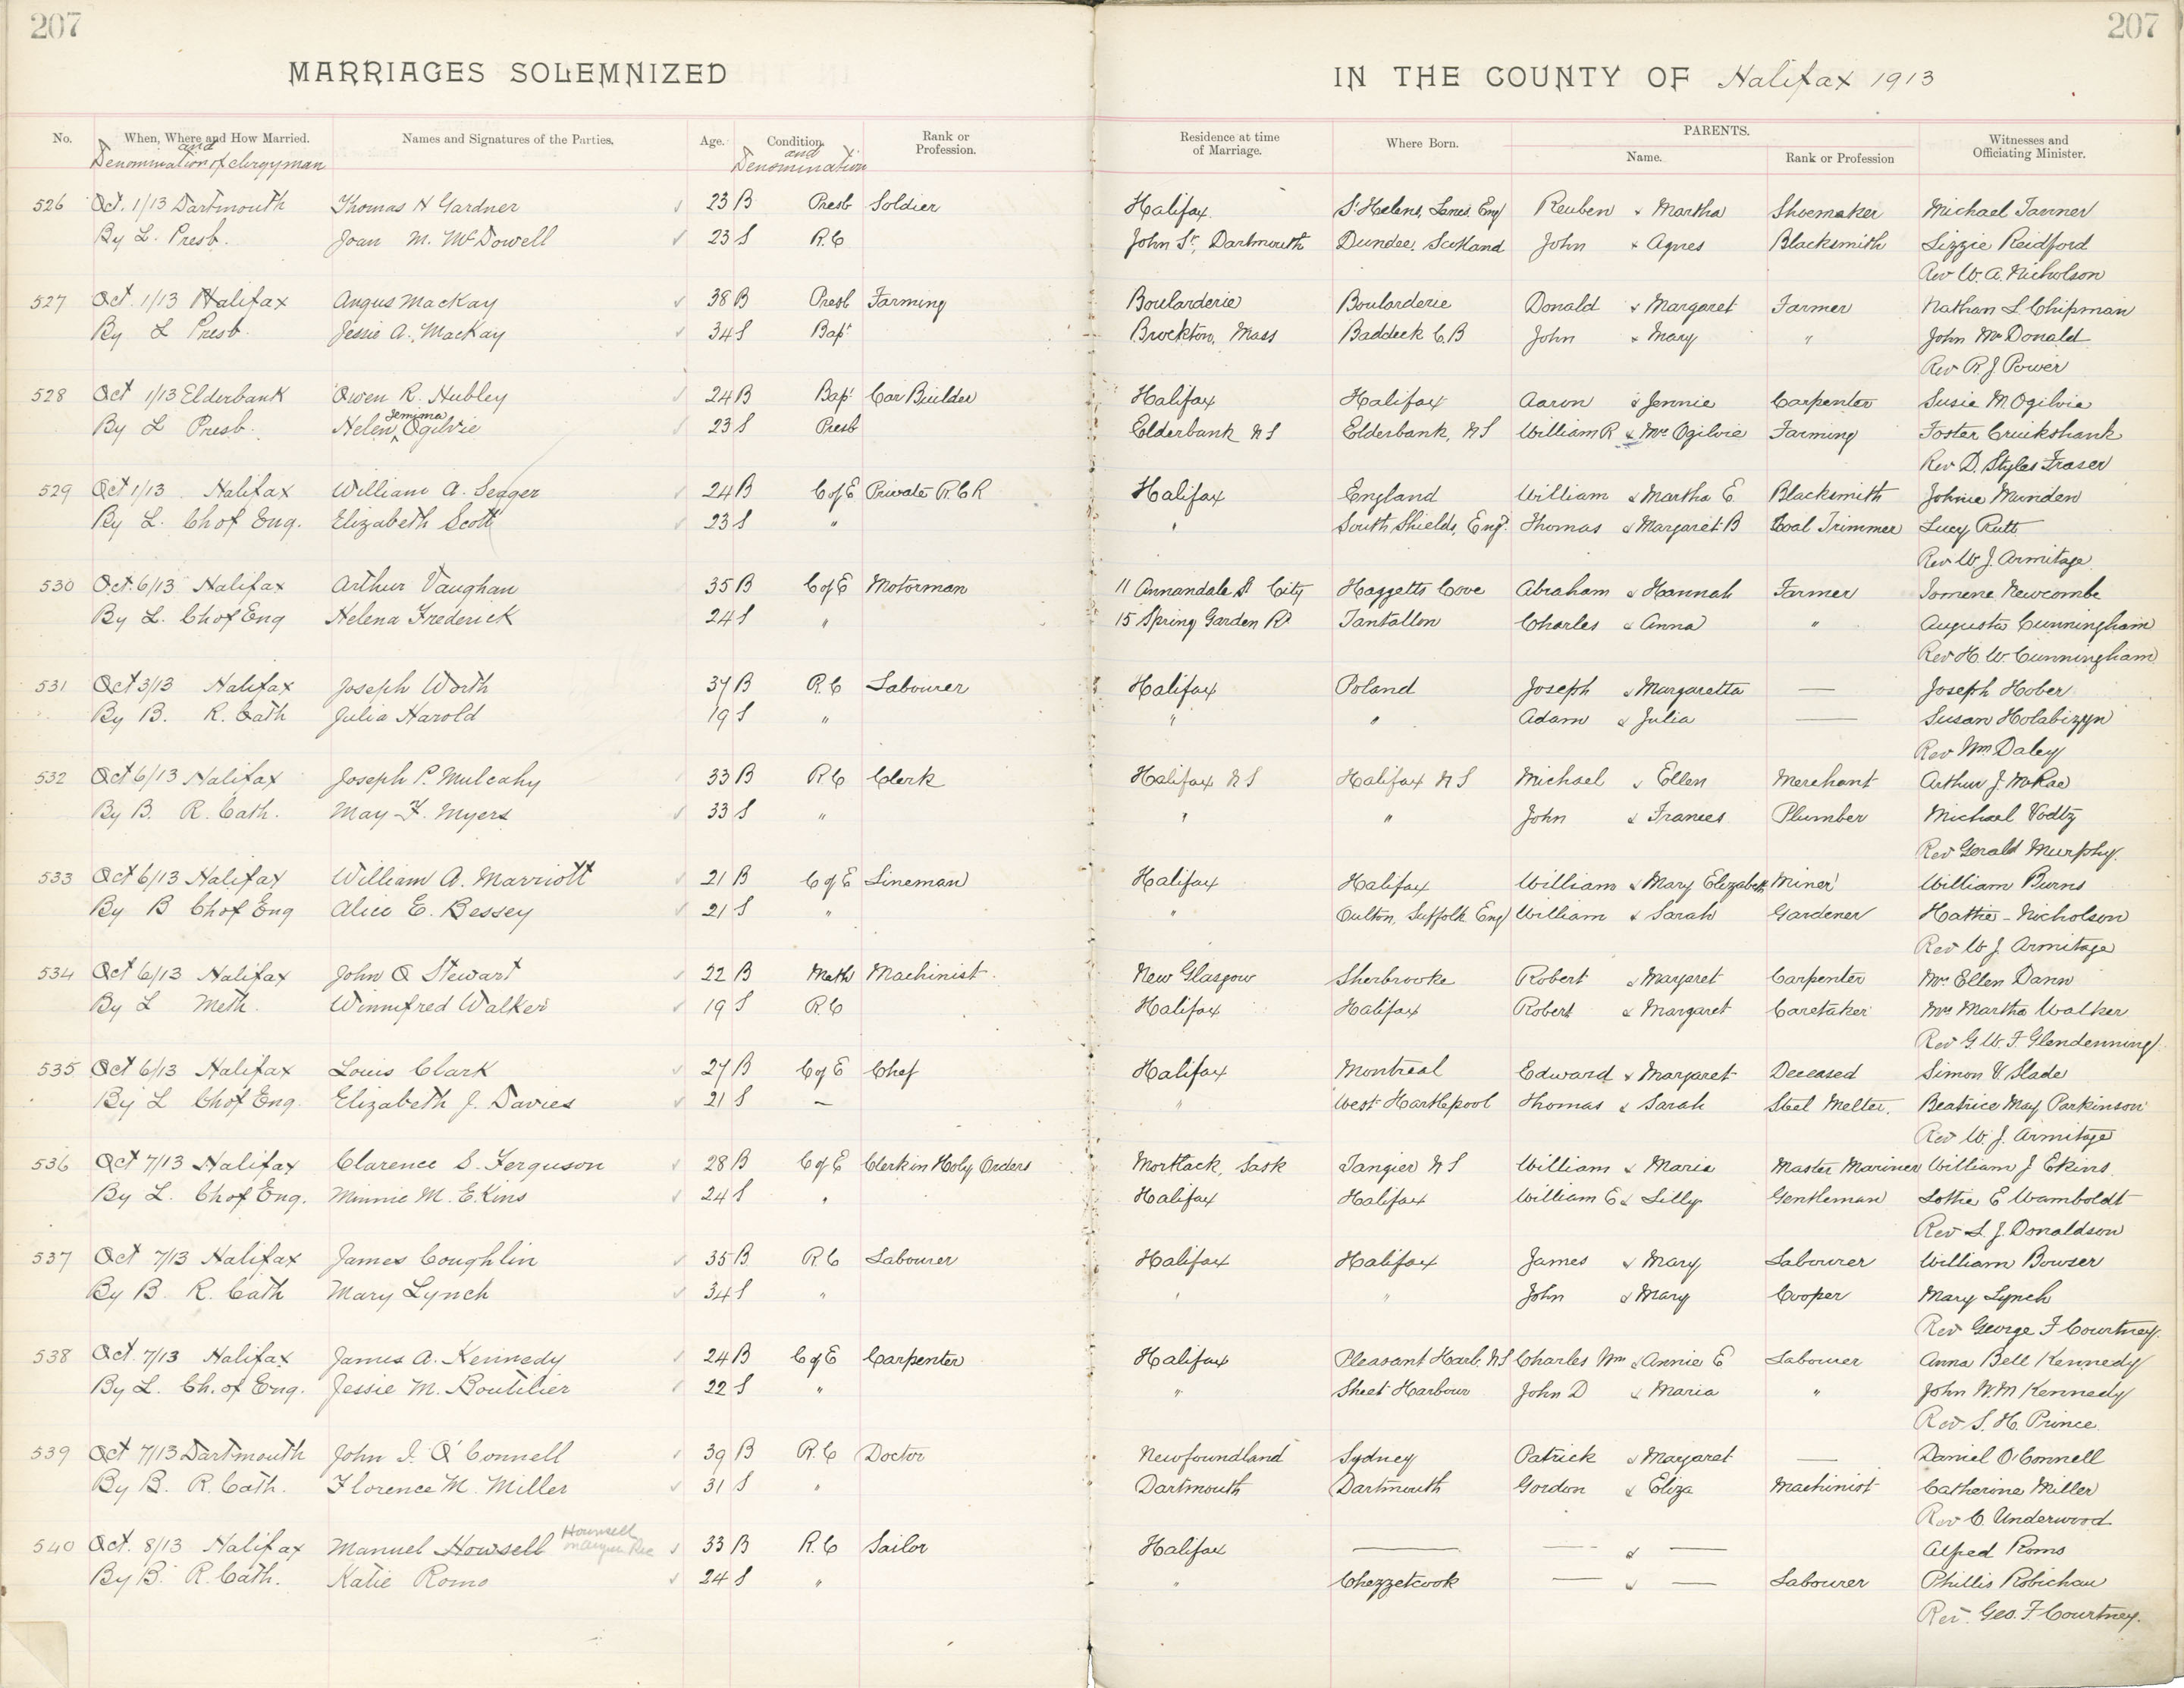 207 207
MARRIAGES SOLEMNIZED IN THE COUNTY OF Halifax 1913
No. When, Where and How Married. and Denomination of clergyman Names and Signatures of the Parties. Age. Condition. and Denomination Rank or Profession. Residence at time of Marriage. Where Born. PARENTS. Name. Rank or Profession Witnesses and Officiating Minister.
526 Oct. 1/13 Dartmouth Thomas H Gardner 23 B Presb Soldier Halifax St Helens, Lancs, Eng Reuben & Martha Shoemaker Michael Tanner
By L. Presb. Joan M. McDowell 23 S R.C John St, Dartmouth Dundee, Scotland John & Agnes Blacksmith Lizzie Reidford
Rev W. A. Nicholson
527 Oct. 1/13 Halifax Angus MacKay 38 B Presb Farming Boularderie Boularderie Donald & Margaret Farmer Nathan L Chipman
By L Presb. Jessie A. MacKay 34 S Bapt Brockton, Mass Baddeck C.B John & Mary " John McDonald
Rev R. J Power
528 Oct 1/13 Elderbank Owen R. Hubley 24 B Bapt Car Builder Halifax Halifax Aaron & Jennie Carpenter Susie M Ogilvie
By L Presb. Helen Jemima Ogilvie 23 S Presb Elderbank NS Elderbank, NS William R & Mrs Ogilvie Farming Foster Cruikshank
Rev D. Styles Fraser
529 Oct 1/13 Halifax William A. Seager 24 B C of E Private R.C.R Halifax England William & Martha E. Blacksmith Johnie Munden
By L. Ch of Eng. Elizabeth Scott 23 S " " South Shields, Eng. Thomas & Margaret B Coal Trimmer Lucy Rutt
Rev W. J. Armitage
530 Oct. 6/13 Halifax Arthur Vaughan 35 B C of E Motorman 11 Annandale St City Haggetts Cove Abraham & Hannah Farmer Jomene Newcombe
By L. Ch of Eng Helena Frederick 24 S " 15 Spring Garden Rd Tantallon Charles & Anna " Augusta Cunningham
Rev H. W. Cunningham
531 Oct 3/13 Halifax Joseph Worth 37 B R.C Labourer Halifax Poland Joseph & Margaretta — Joseph Hober
By B. R. Cath Julia Harold 19 S " " " Adam & Julia — Susan Holabizyn
Rev Wm Daley
532 Oct 6/13 Halifax Joseph P. Mulcahy 33 B R.C Clerk Halifax NS Halifax NS Michael & Ellen Merchant Arthur J. McRae
By B. R. Cath. May F. Myers 33 S " " " John & Frances Plumber Michael Vodtz
Rev Gerald Murphy.
533 Oct 6/13 Halifax William A. Marriott 21 B C of E Lineman Halifax Halifax William & Mary Elizabeth Miner William Burns
By B Ch of Eng Alice E. Bessey 21 S " " Oulton, Suffolk Eng William & Sarah Gardener Hattie Nicholson
Rev W J. Armitage
534 Oct 6/13 Halifax John A Stewart 22 B Meth Machinist New Glasgow Sherbrooke Robert & Margaret Carpenter Mrs Ellen Dann
By L Meth. Winnifred Walker 19 S R.C Halifax Halifax Robert & Margaret Caretaker Mrs Martha Walker
Rev G. W. F Glendenning
535 Oct 6/13 Halifax Louis Clark 27 B C of E Chef Halifax Montreal Edward & Margaret Deceased Simon V. Slade
By L Ch of Eng. Elizabeth J. Davies 21 S — " West Hartlepool Thomas & Sarah Steel Melter. Beatrice May Parkinson
Rev W. J. Armitage
536 Oct 7/13 Halifax Clarence S. Ferguson 28 B C of E Clerk in Holy Orders Mortlack, Sask Tangier NS William & Maria Master Mariner William J Ekins.
By L. Ch of Eng. Minnie M. Ekins 24 S " Halifax Halifax William E & Lilly Gentleman Lottie E Wamboldt
Rev L. J. Donaldson
537 Oct 7/13 Halifax James Coughlin 35 B R.C Labourer Halifax Halifax James & Mary Labourer William Bowser
By B R. Cath Mary Lynch 34 S " " " John & Mary Cooper Mary Lynch
Rev George F Courtney.
538 Oct. 7/13 Halifax James A. Kennedy 24 B C of E Carpenter Halifax Pleasant Harb. NS Charles Wm & Annie E Labourer Anna Bell Kennedy
By L. Ch. of Eng. Jessie M. Boutilier 22 S " " Sheet Harbour John D & Maria " John W. M Kennedy
Rev S. H. Prince
539 Oct 7/13 Dartmouth John I. O'Connell 39 B R.C Doctor Newfoundland Sydney Patrick & Margaret — Daniel O'Connell
By B. R. Cath. Florence M. Miller 31 S " Dartmouth Dartmouth Gordon & Eliza Machinist Catherine Miller
Rev C. Underwood
540 Oct. 8/13 Halifax Manuel Howsell Hounsell 33 B R.C Sailor Halifax — — & — Alfred Roms
By B. R. Cath. Katie Roms 24 S " " Chezzetcook — & — Labourer Phillis Robichau
Rev. Geo. F Courtney.